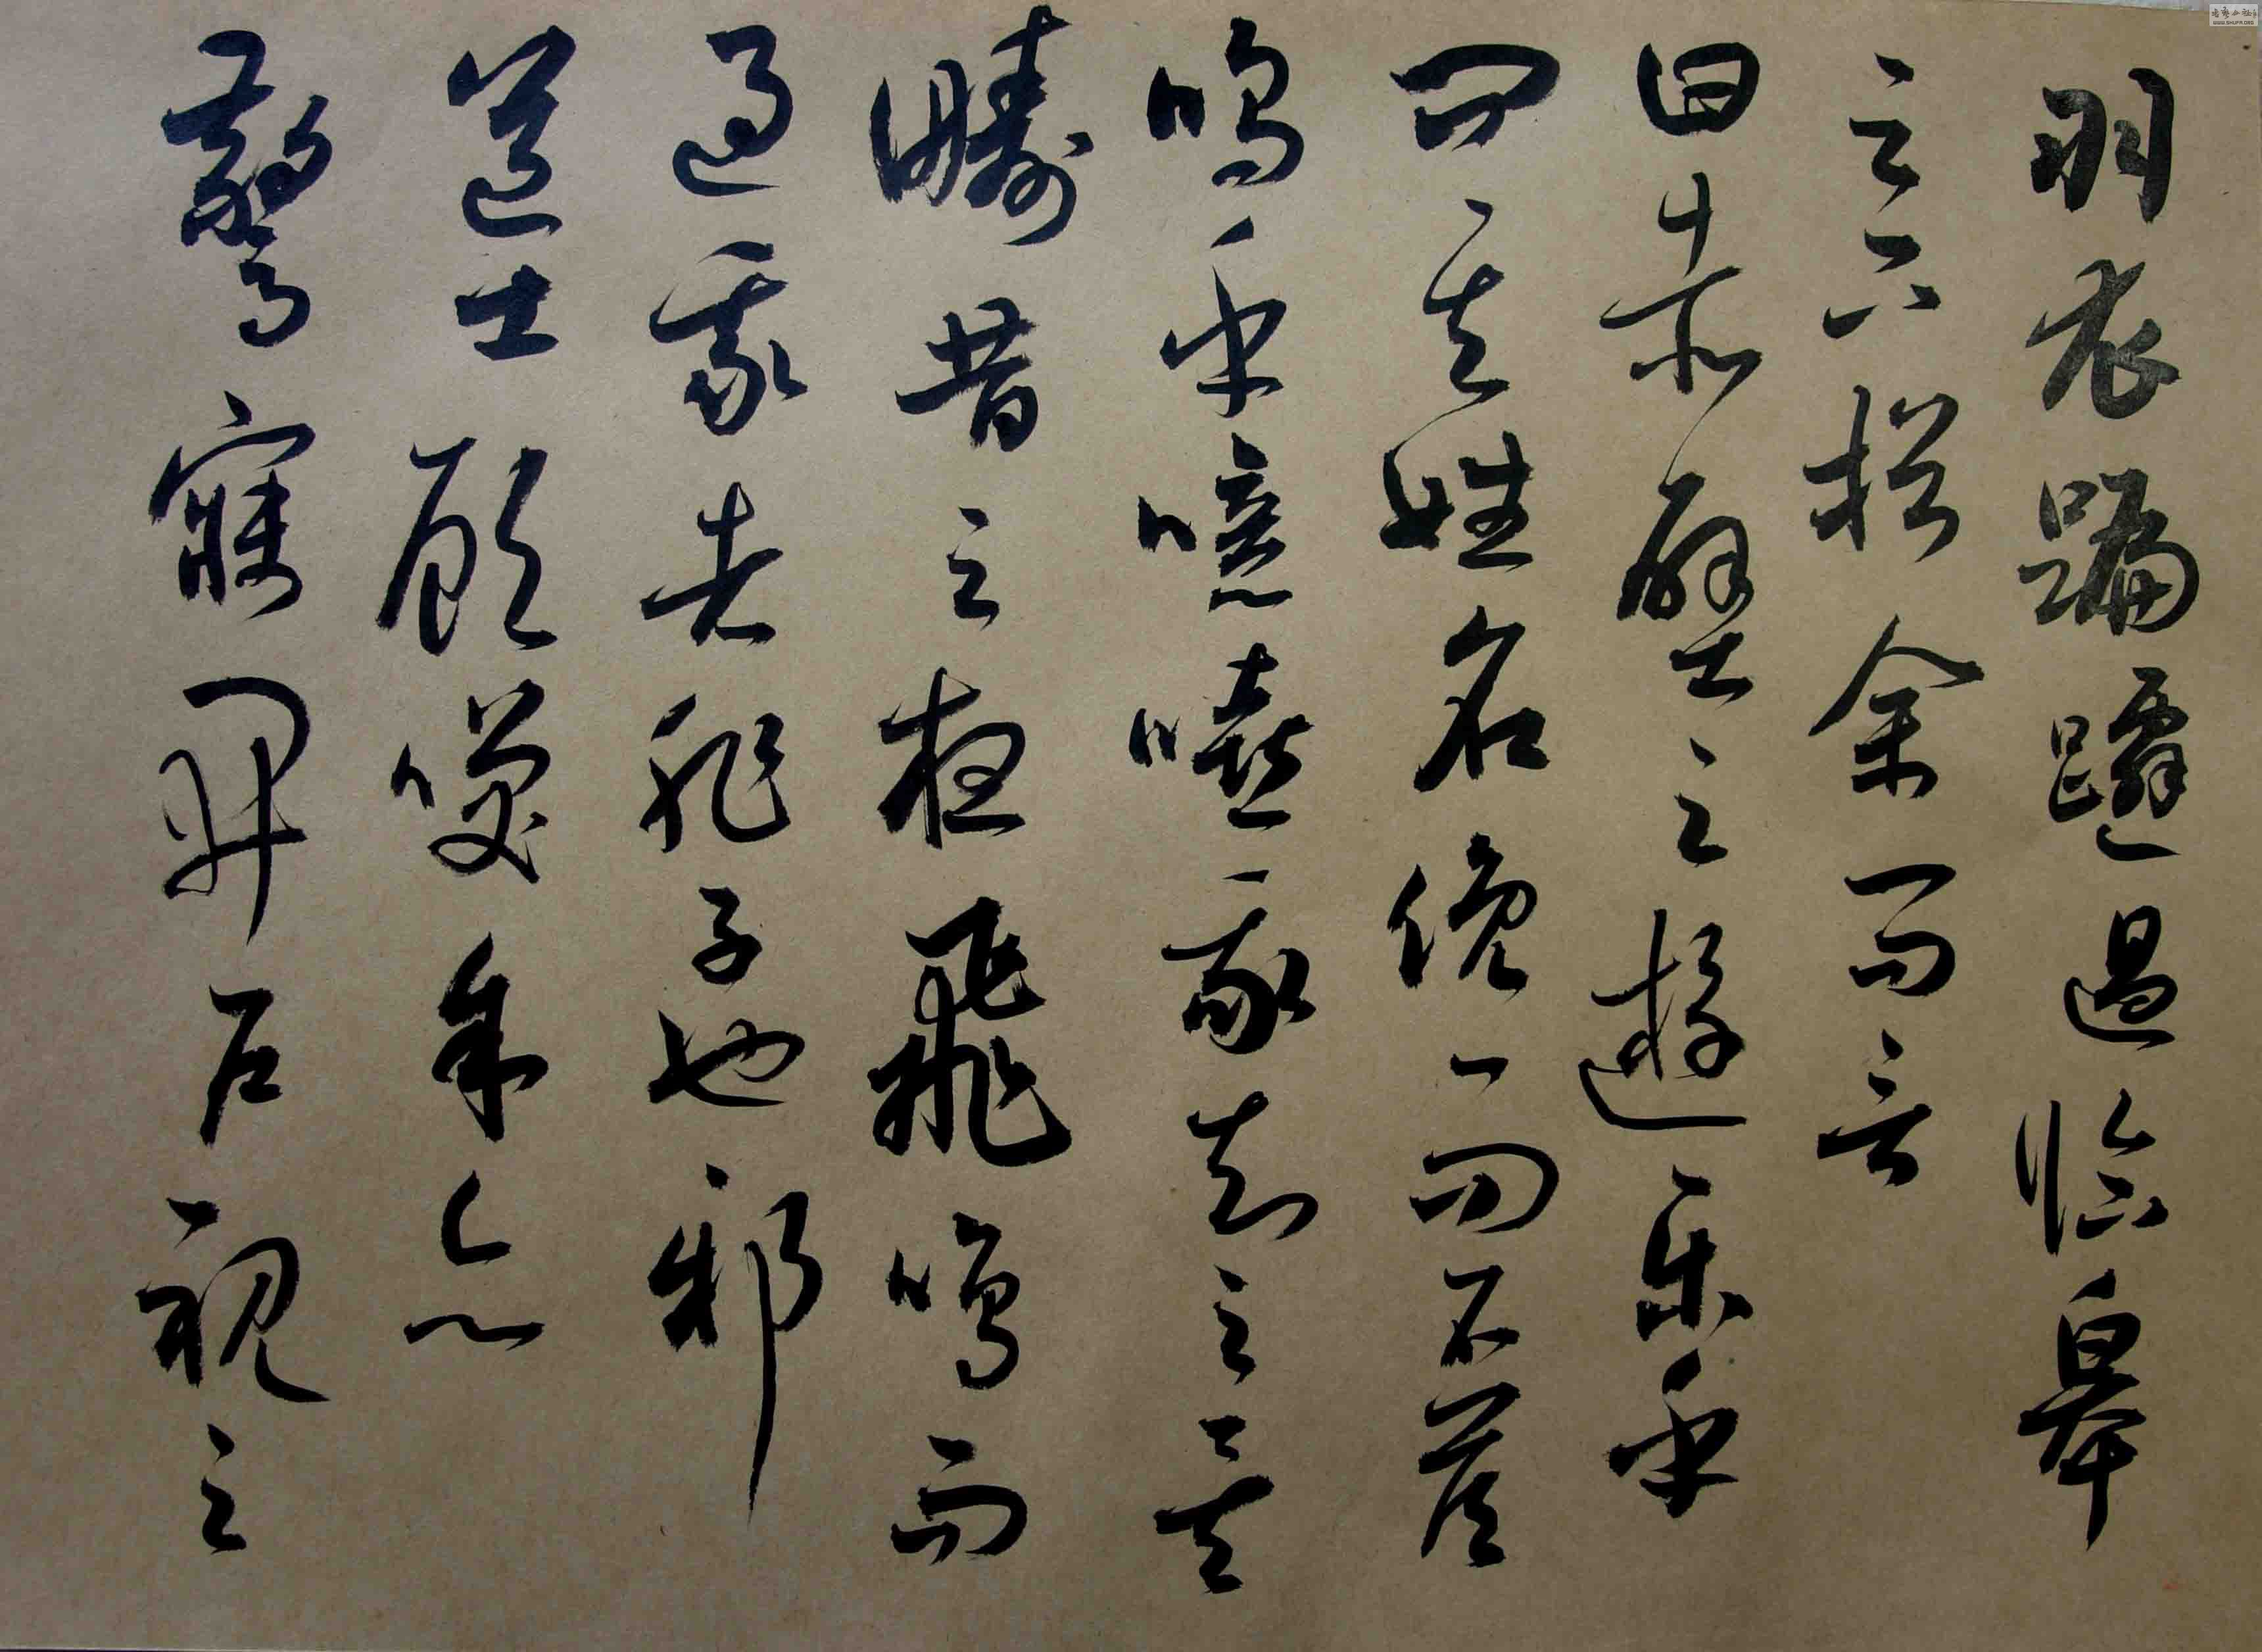 羽衣蹁躚過臨皋
之下揖余而言
曰赤壁之遊樂乎
問其姓名俛而不答
嗚乎噫嘻我知之矣
疇昔之夜飛鳴而
過我者非子也邪
道士顧笑余亦
驚寤開戶視之
WWW.SHUFA.ORG